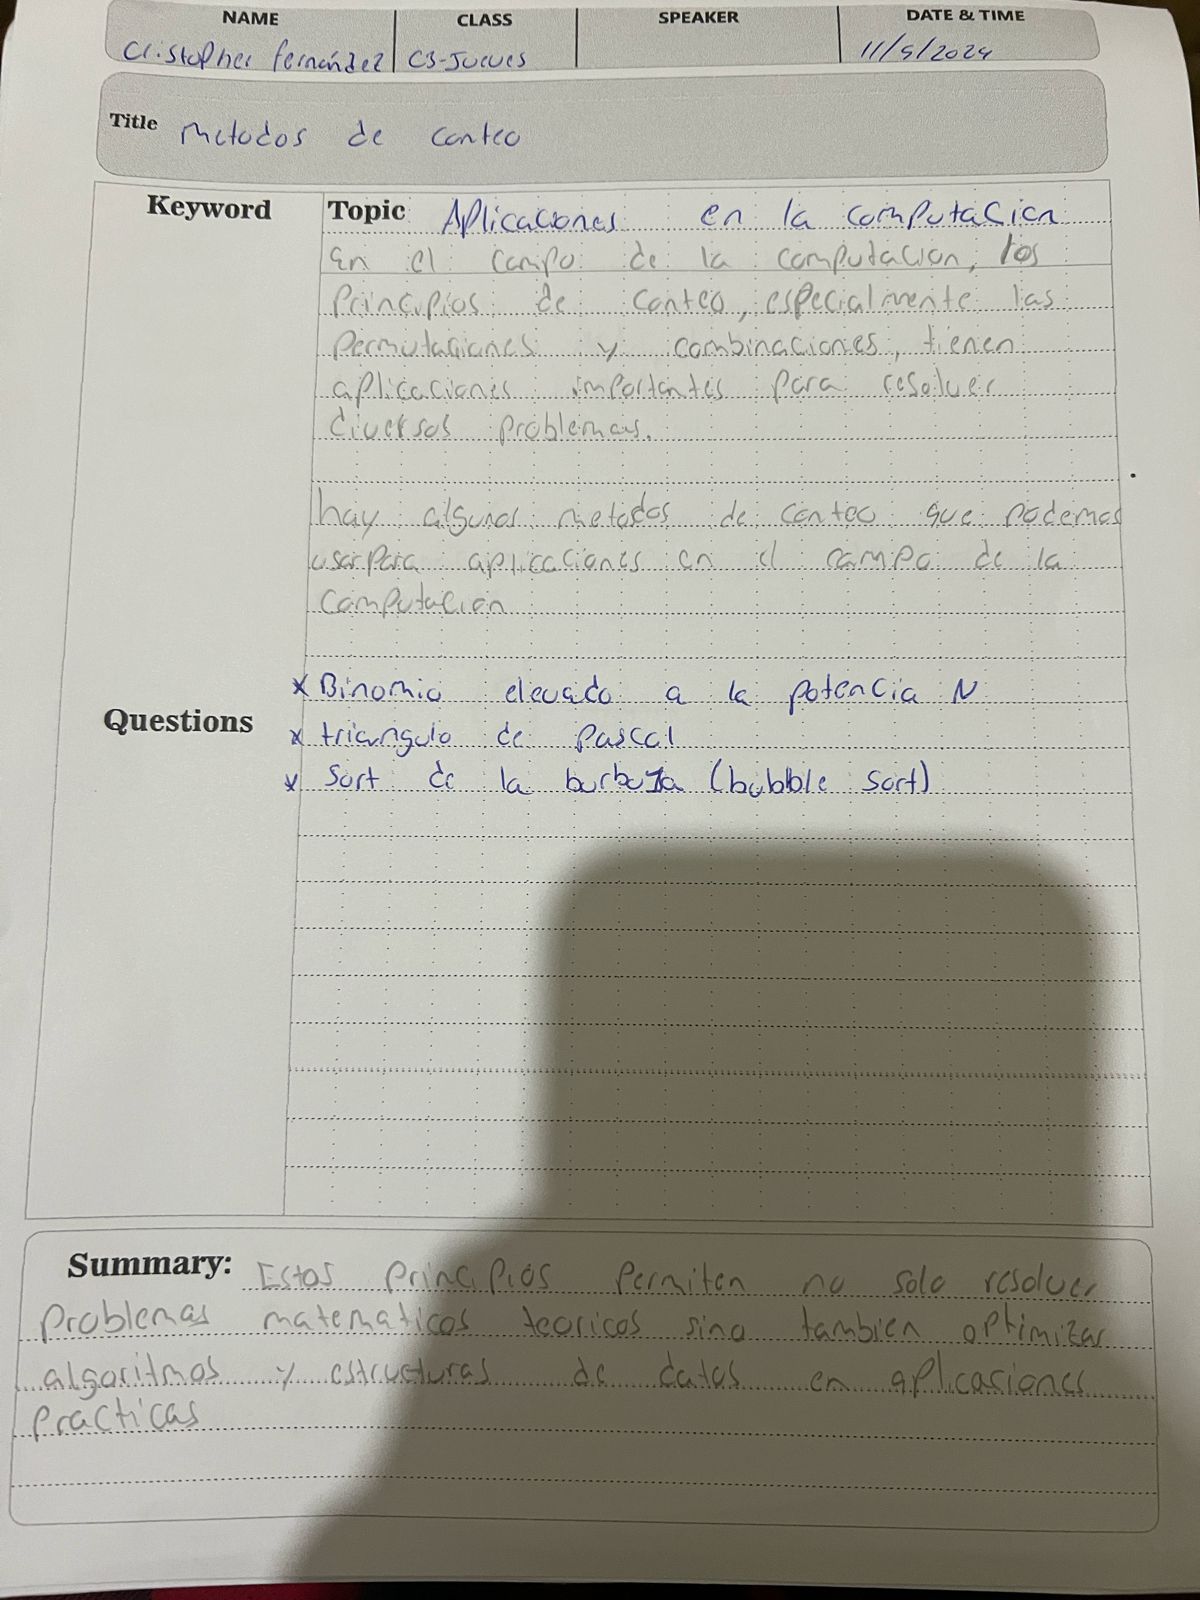 NAME CLASS SPEAKER DATE & TIME
Cristopher fernández C3-Jueves 11/9/2024
Title metodos de conteo
Keyword
Topic Aplicaciones en la computacion
en el campo de la computacion, los
Principios de conteo, especialmente las
Permutaciones y combinaciones, tienen
aplicaciones importantes para resolver
diversos problemas.
hay algunos metodos de conteo que podemos
usar para aplicaciones en el campo de la
computacion
x Binomio elevado a la potencia N
Questions
x triangulo de Pascal
x Sort de la burbuja (bubble sort)
Summary: Estos principios permiten no solo resolver
Problemas matematicos teoricos sino tambien optimizar
algoritmos y estructuras de datos en aplicasiones
Practicas